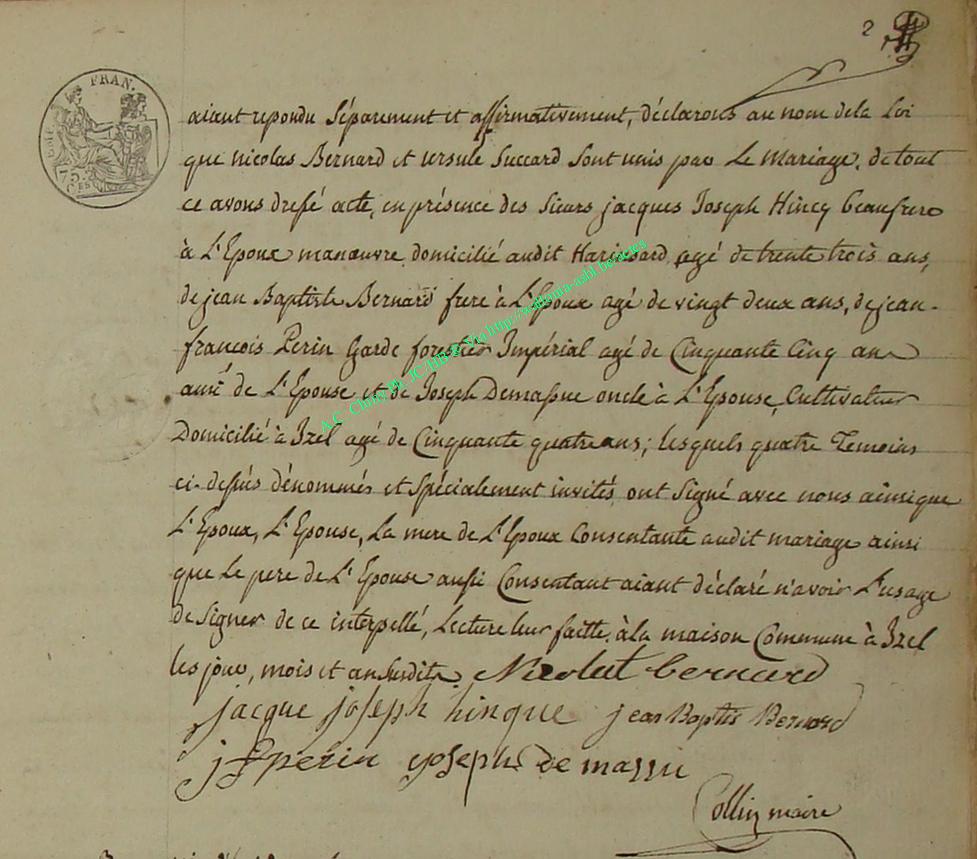 2
EMP. FRAN.
75.
C.ES
aiant repondu séparement et affirmativement, déclarons au nom de la Loi
que nicolas Bernard et ursule Succard sont unis par Le Mariage. de tout
ce avons dressé acte, en présence des sieurs jacques Joseph Hincq beaufrere
à L'Epoux manœuvre domicilié audit Harinsard, agé de trente trois ans,
de jean Baptiste Bernard frere à L'Epoux agé de vingt deux ans, de jean-
francois Perin Garde forestier Impérial agé de Cinquante Cinq ans
ami de L'Epouse et de Joseph Demassue oncle à L'Epouse, Cultivateur
Domicilié à Izel agé de Cinquante quatre ans; lesquels quatre Temoins
ci-dessus dénommés et spécialement invités ont signé avec nous ainsi que
L'Epoux, L'Epouse, La mere de L'Epoux Consentante audit mariage ainsi
que Le pere de L'Epouse aussi Consentant aiant déclaré n'avoir L'usage
de signer de ce interpellé, Lecture leur faitte, à la maison Commune à Izel
les jour, mois et an susdits. Nicolas bernard
jacque joseph hinque jean Baptis Bernard
j f perin joseph de massu
Collin maire